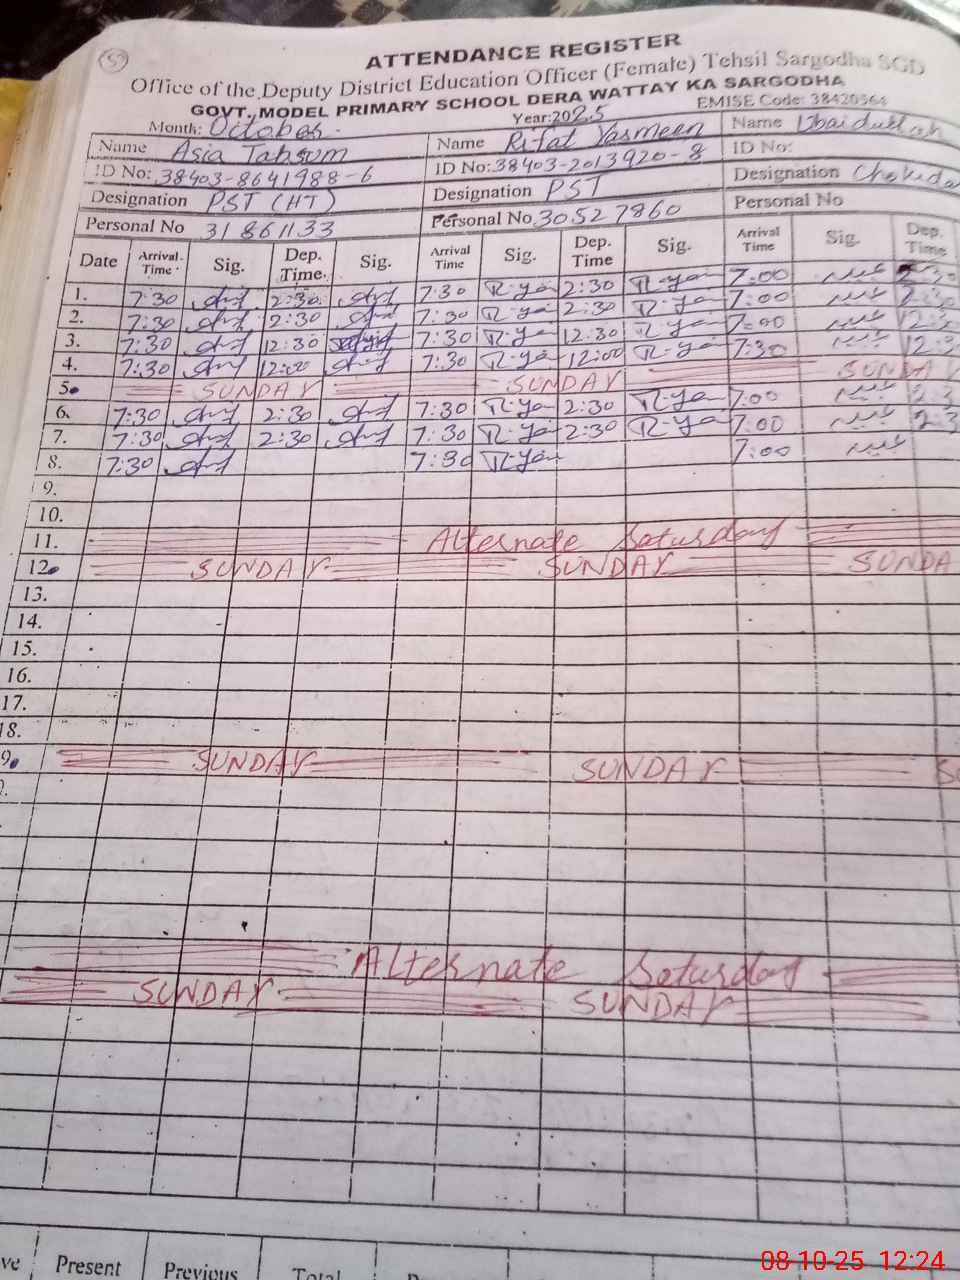 57
ATTENDANCE REGISTER
Office of the Deputy District Education Officer (Female) Tehsil Sargodha SGD
GOVT. MODEL PRIMARY SCHOOL DERA WATTAY KA SARGODHA
EMISE Code: 38420564
Month: October. Year:2025
Name Asia Tabsum Name Rifat Yasmeen Name Ubaidullah
ID No: 38403-8641988-6 ID No: 38403-2013920-8 ID No:
Designation PST (HT) Designation PST Designation
Personal No 31861133 Personal No 30527860 Personal No
Date Arrival Time Sig. Dep. Time. Sig. Arrival Time Sig. Dep. Time Sig. Arrival Time Sig. Dep. Time
1. 7:30 2:30 7:30 R-ya 2:30 R-ya 7:00 عبید 2:30
2. 7:30 2:30 7:30 R-ya 2:30 R-ya 7:00 عبید 2:30
3. 7:30 12:30 7:30 R-ya 12:30 R-ya 7:00 عبید 12:3
4. 7:30 12:00 7:30 R-ya 12:00 R-ya 7:30 عبید 12:3
5. SUNDAY SUNDAY SUNDAY
6. 7:30 2:30 7:30 R-ya 2:30 R-ya 7:00 عبید 2:3
7. 7:30 2:30 7:30 R-ya 2:30 R-ya 7:00 عبید 2:3
8. 7:30 7:30 R-ya 7:00 عبید
9.
10.
11. Alternate Saturday
12. SUNDAY SUNDAY SUNDA
13.
14.
15.
16.
17.
18.
9. SUNDAY SUNDAY S
Alternate Saturday
SUNDAY SUNDAY
ve Present Previous Total
08-10-25 12:24